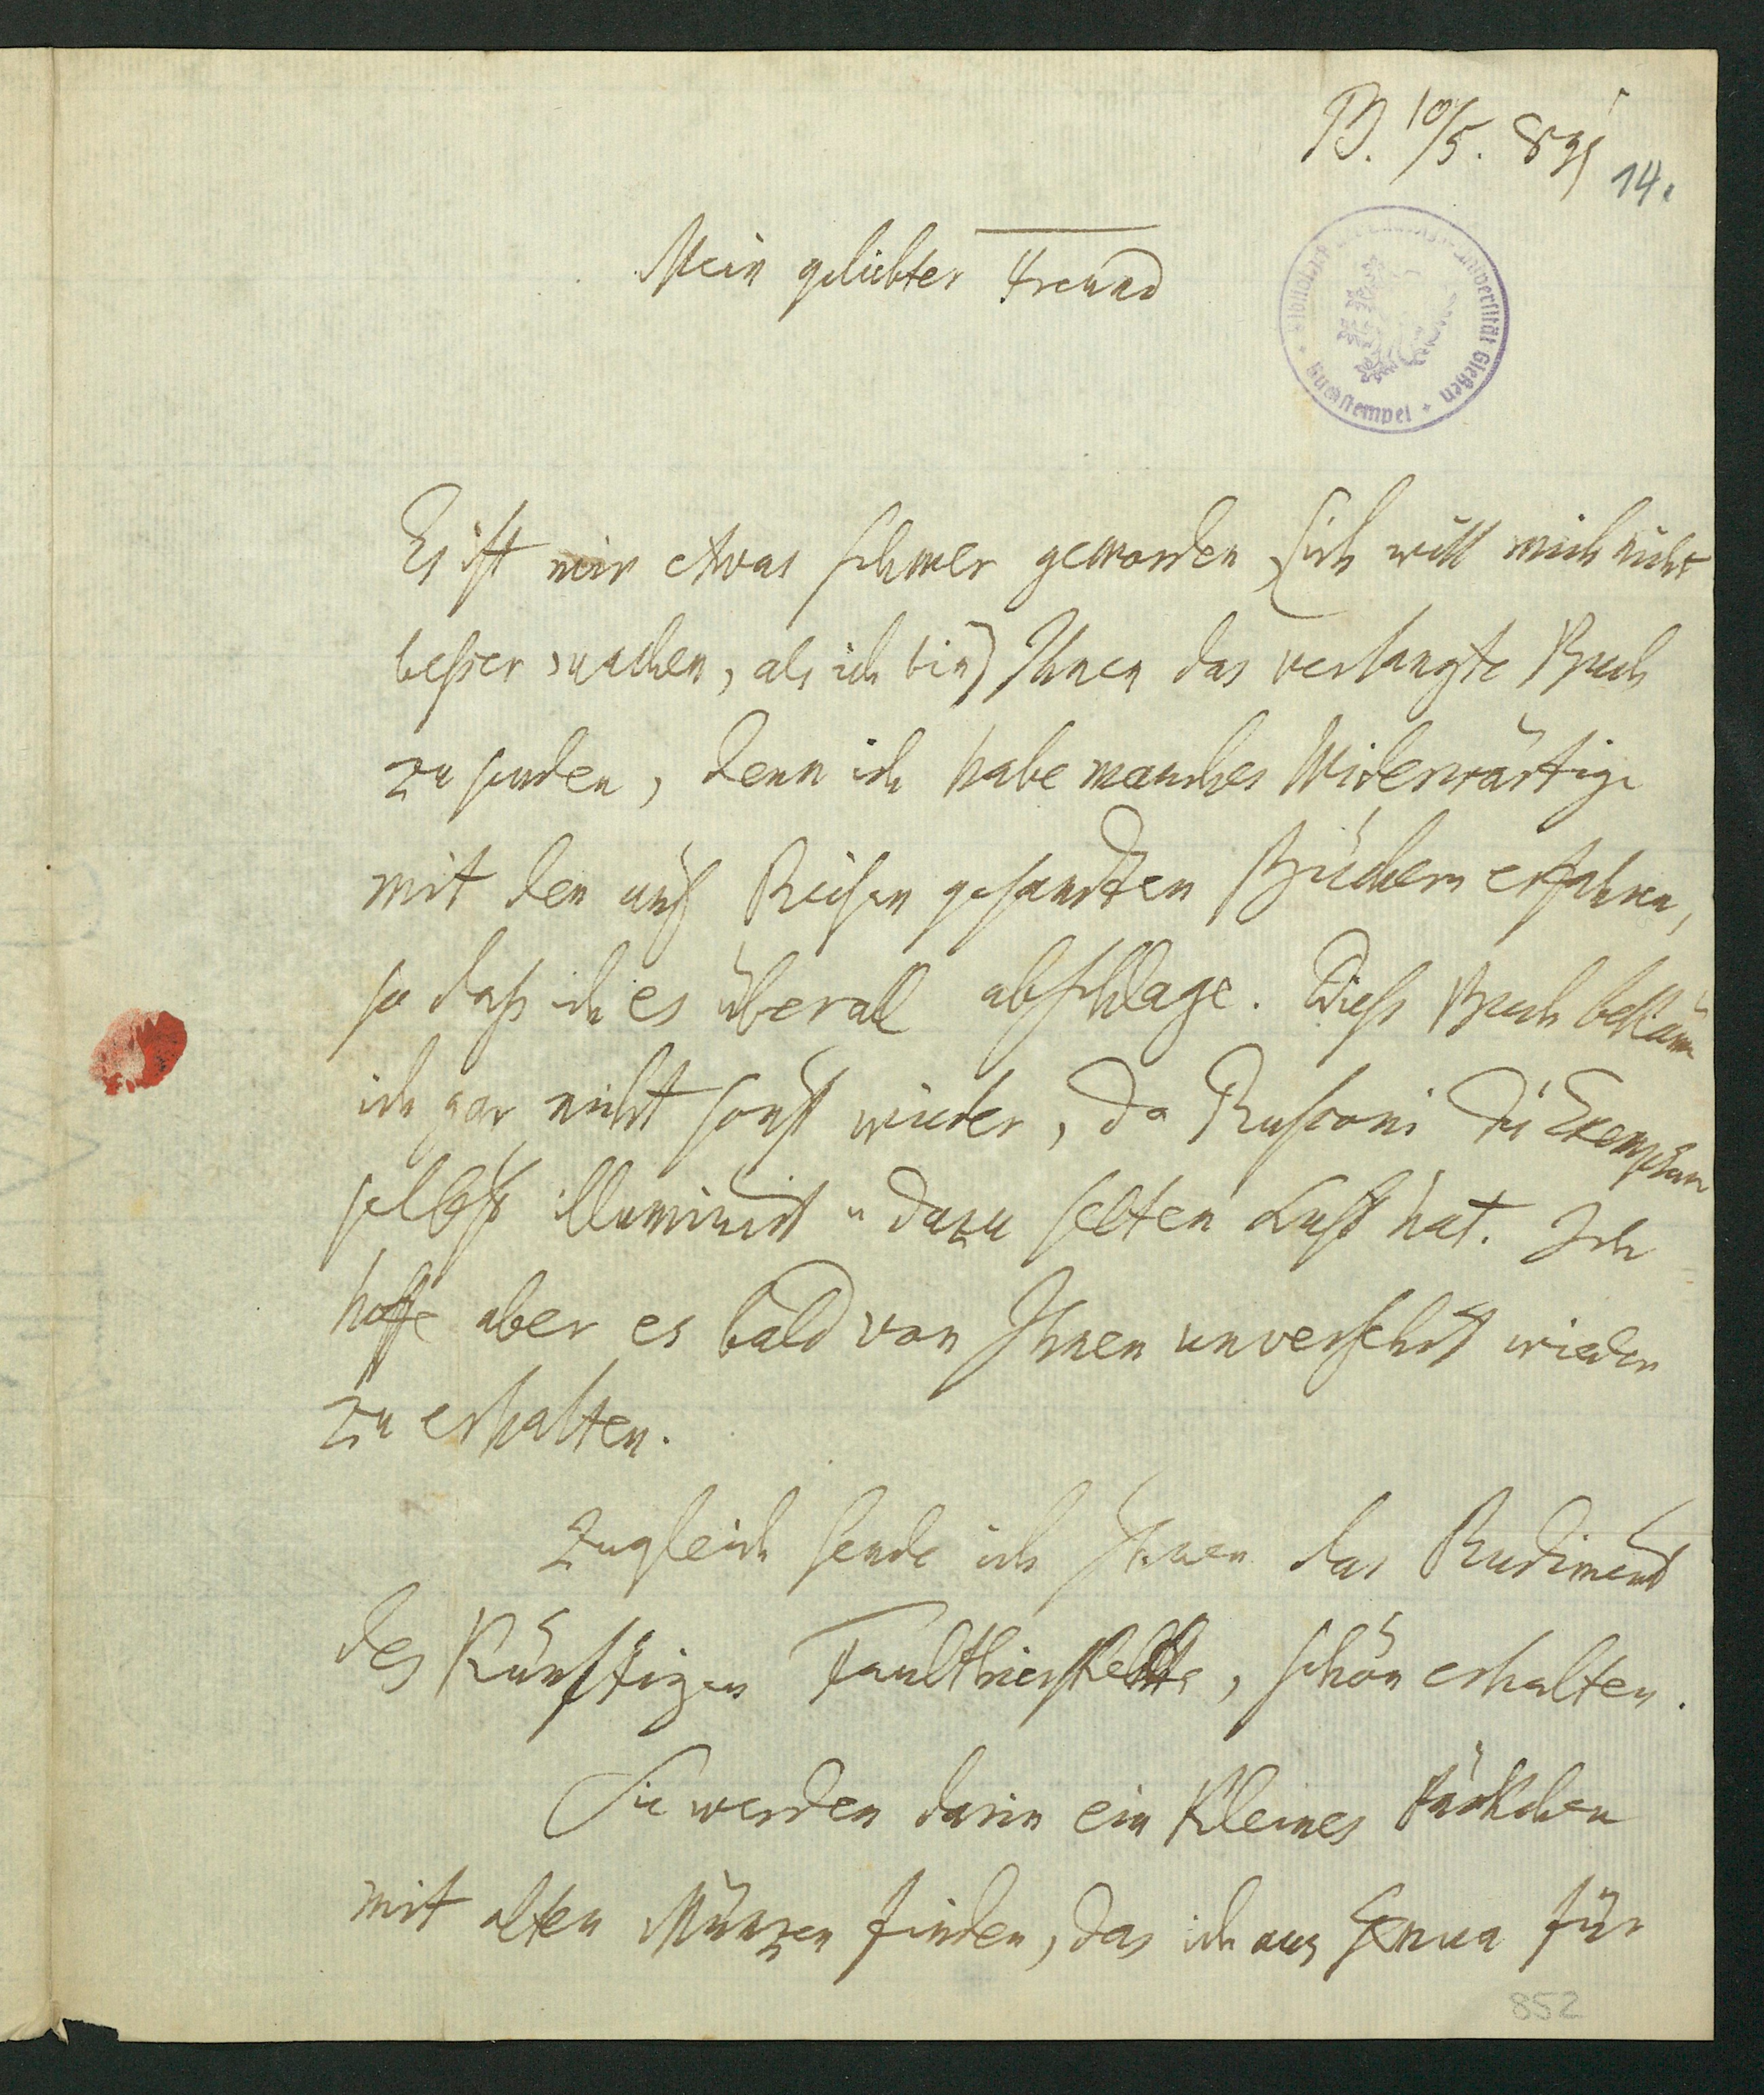 B. 10/5. 831
14.
Mein geliebter Freund
Universität Gießen
Buchstempel
Es ist mir etwas schwer geworden (ich will mich nicht
besser machen, als ich bin) Ihnen das verlangte Buch
zu senden, denn ich habe manches Widerwärtige
mit den auf Reisen gesandten Büchern erfahren,
so daß ich es überall abschlage. Dieß Buch bekäm
ich gar nicht sonst wieder, da Rusconi die Exemplare
selbst illuminirt u dazu selten Lust hat. Ich
hoffe aber es bald von Ihnen unversehrt wieder
zu erhalten.
Zugleich sende ich Ihnen das Rudiment
des künftigen Faulthierskeletts, schön erhalten.
Sie werden darin ein kleines Päckchen
mit alten Münzen finden, das ich aus Genua für
852